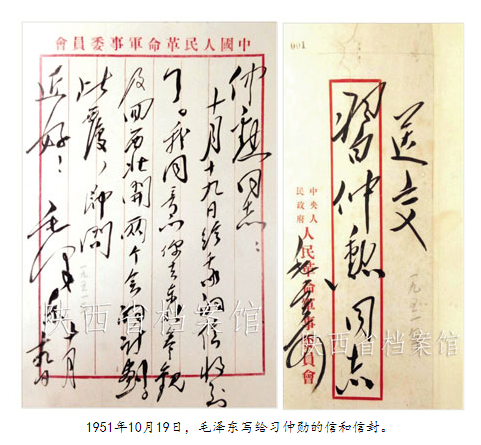 中國人民革命軍事委員會
仲勳同志：
十月十九日给我的信收到
了。我同意你去东北参观
及回西北開两个会的計劃。
此覆，即問
近好！
毛泽东 十月
一九五一
陕西省档案馆
001
送交
習仲勳同志
中央人民政府人民革命軍事委員會
一九五一
陕西省档案馆
1951年10月19日，毛泽东写给习仲勋的信和信封。